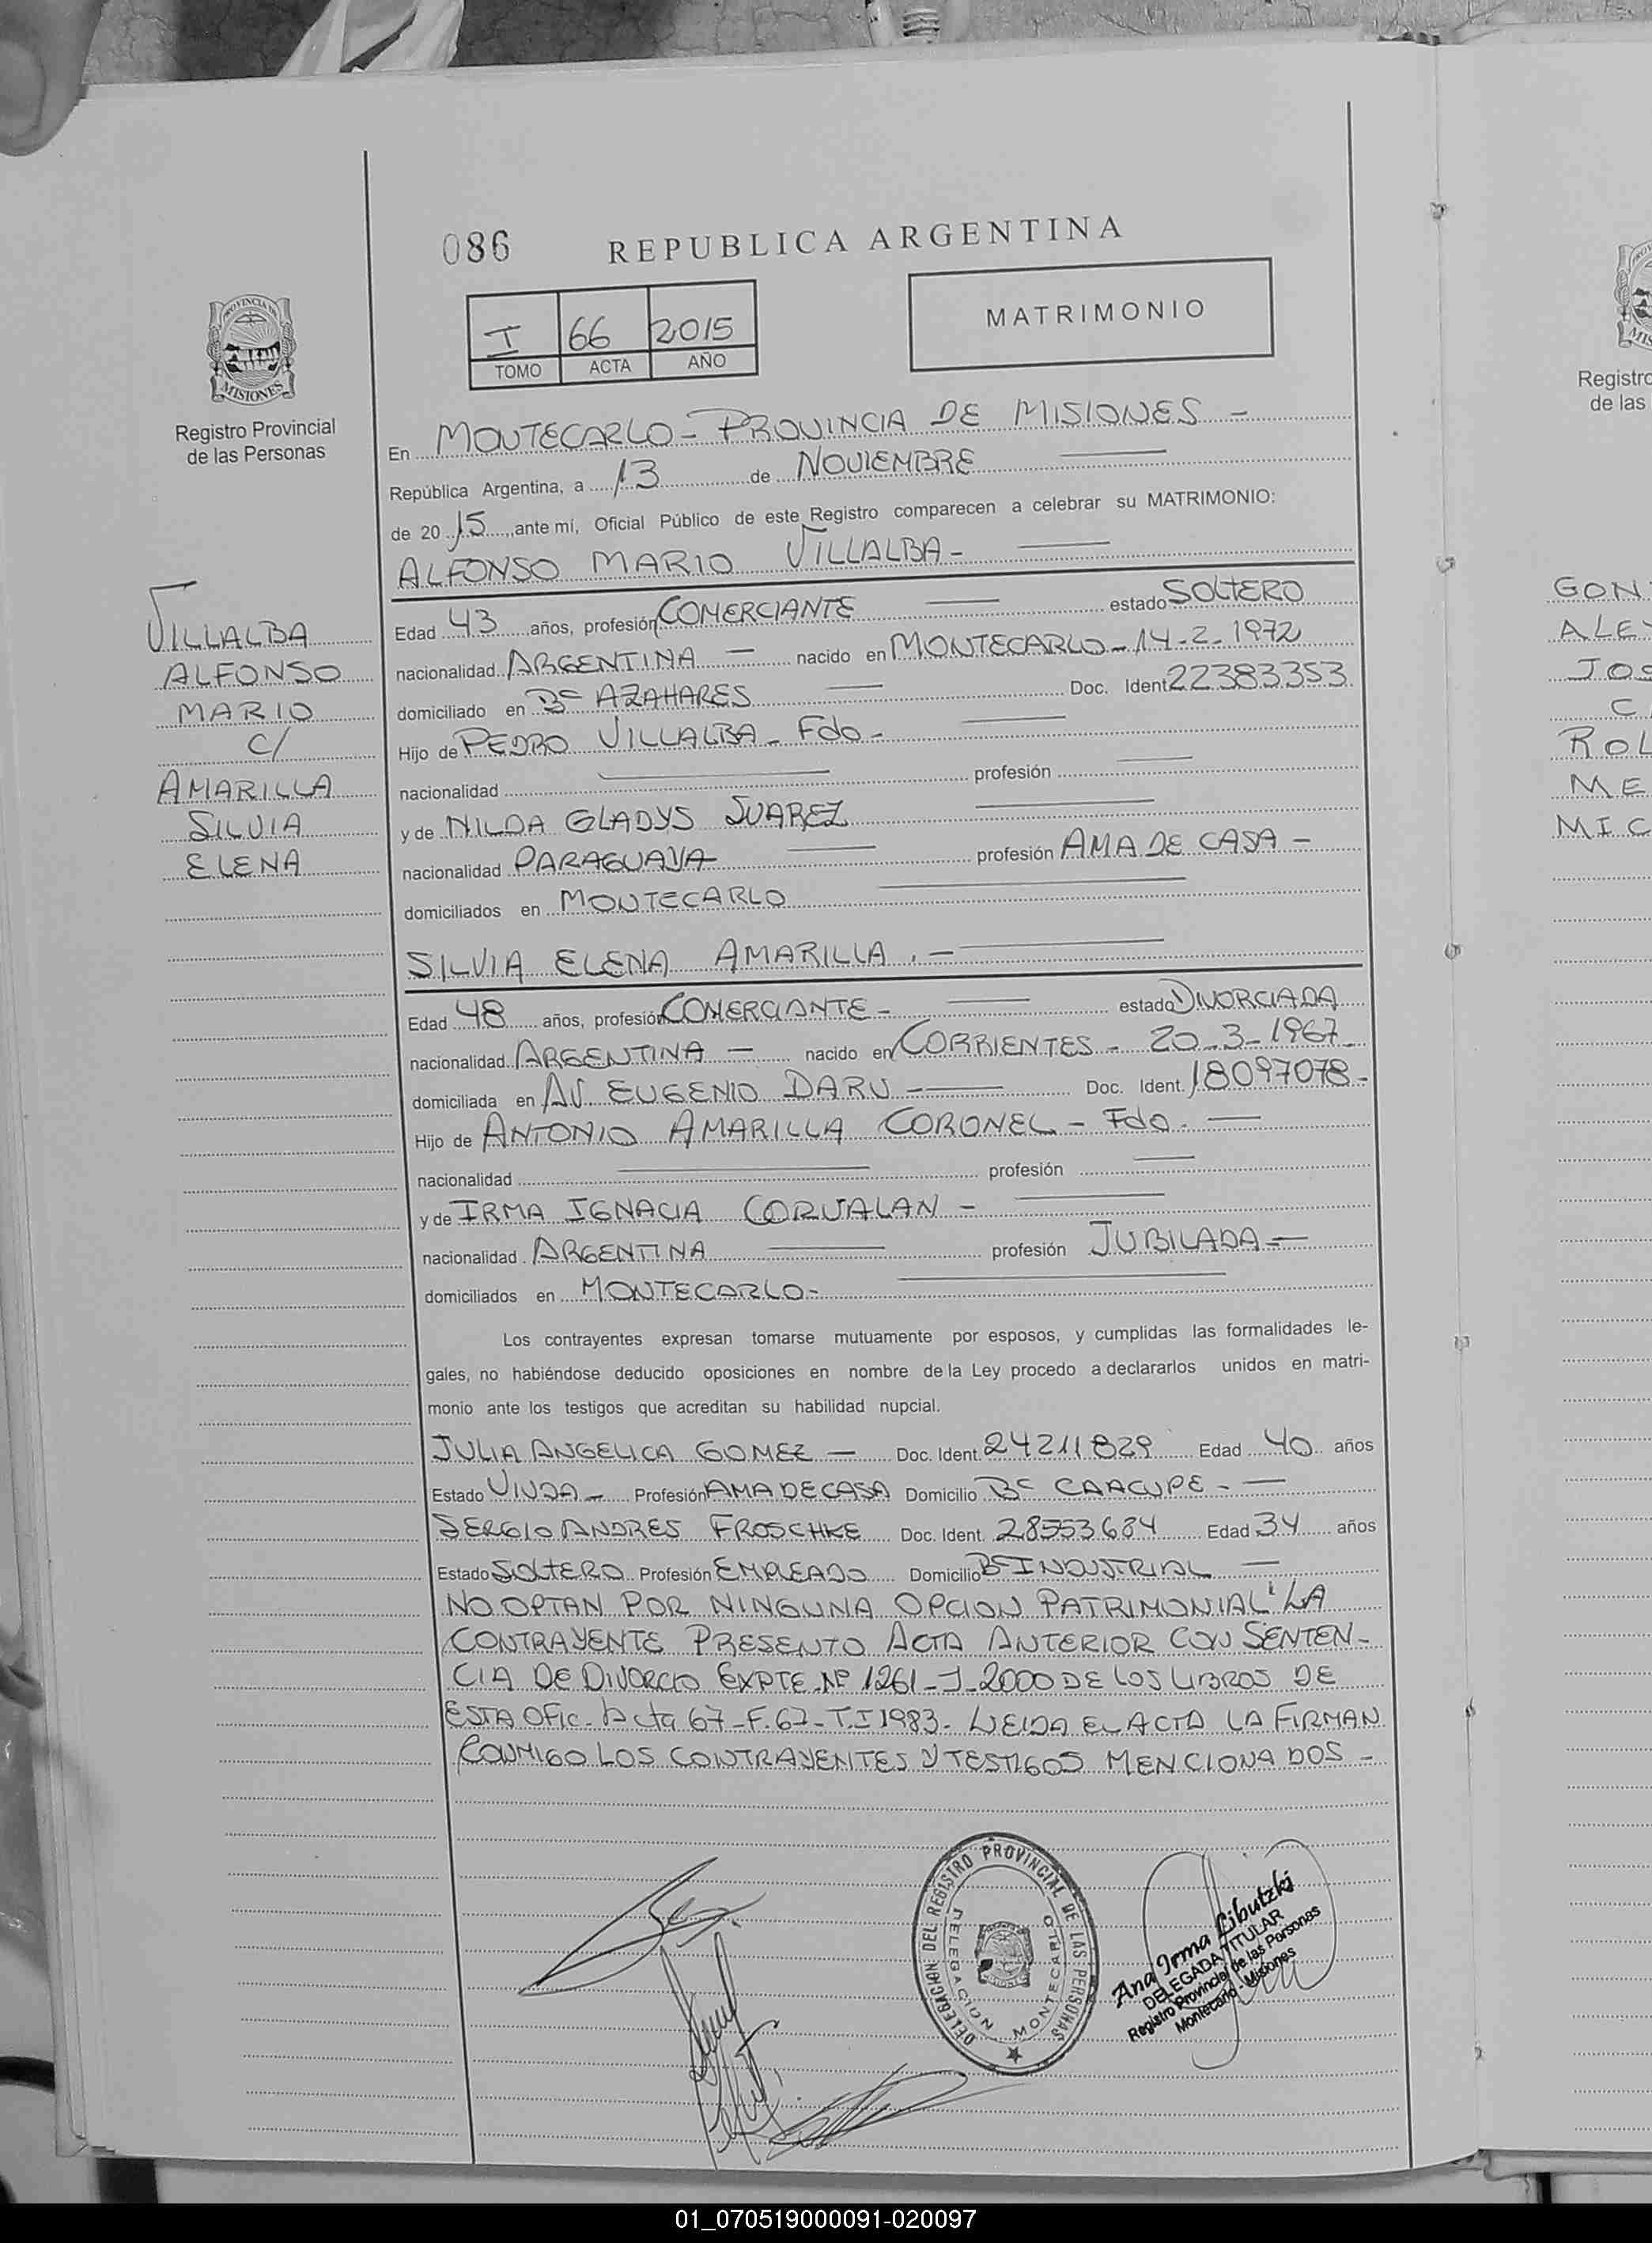 086 REPUBLICA ARGENTINA
I 66 2015
TOMO ACTA AÑO
MATRIMONIO
PROVINCIA DE
MISIONES
Registro Provincial
de las Personas
En MONTECARLO - PROVINCIA DE MISIONES -
República Argentina, a 13 de NOVIEMBRE
de 2015, ante mí, Oficial Público de este Registro comparecen a celebrar su MATRIMONIO:
ALFONSO MARIO VILLALBA -
VILLALBA
ALFONSO
MARIO
C/
AMARILLA
SILVIA
ELENA
Edad 43 años, profesión COMERCIANTE estado SOLTERO
nacionalidad ARGENTINA - nacido en MONTECARLO - 14-2-1972
domiciliado en Bº AZAHARES Doc. Ident 22383353
Hijo de PEDRO VILLALBA - Fdo -
nacionalidad profesión
y de NILDA GLADYS SUAREZ
nacionalidad PARAGUAYA profesión AMA DE CASA -
domiciliados en MONTECARLO
SILVIA ELENA AMARILLA . -
Edad 48 años, profesión COMERCIANTE - estado DIVORCIADA
nacionalidad ARGENTINA - nacido en CORRIENTES - 20-3-1967
domiciliada en AV. EUGENIO DARU - Doc. Ident. 18097078 -
Hijo de ANTONIO AMARILLA CORONEL - Fdo. -
nacionalidad profesión
y de IRMA IGNACIA CORVALAN -
nacionalidad ARGENTINA profesión JUBILADA -
domiciliados en MONTECARLO -
Los contrayentes expresan tomarse mutuamente por esposos, y cumplidas las formalidades le-
gales, no habiéndose deducido oposiciones en nombre de la Ley procedo a declararlos unidos en matri-
monio ante los testigos que acreditan su habilidad nupcial.
JULIA ANGELICA GOMEZ - Doc. Ident. 24211829 Edad 40 años
Estado VIUDA - Profesión AMA DE CASA Domicilio Bº CAACUPE -
SERGIO ANDRES FROSCHKE Doc. Ident. 28553684 Edad 34 años
Estado SOLTERO Profesión EMPLEADO Domicilio Bº INDUSTRIAL
NO OPTAN POR NINGUNA OPCION PATRIMONIAL LA
CONTRAYENTE PRESENTO ACTA ANTERIOR CON SENTEN-
CIA DE DIVORCIO EXPTE Nº 1261-J-2000 DE LOS LIBROS DE
ESTA OFIC. Acta 67-F.67-T.I 1983- LEIDA EL ACTA LA FIRMAN
CONMIGO LOS CONTRAYENTES Y TESTIGOS MENCIONADOS -
DELEGACION DEL REGISTRO PROVINCIAL DE LAS PERSONAS
DELEGACION MONTECARLO
Ana Irma Libutzki
DELEGADA TITULAR
Registro Provincial de las Personas
Montecarlo - Misiones
Registro
de las
GON
ALE
JOS
C
ROL
ME
MIC
01_070519000091-020097